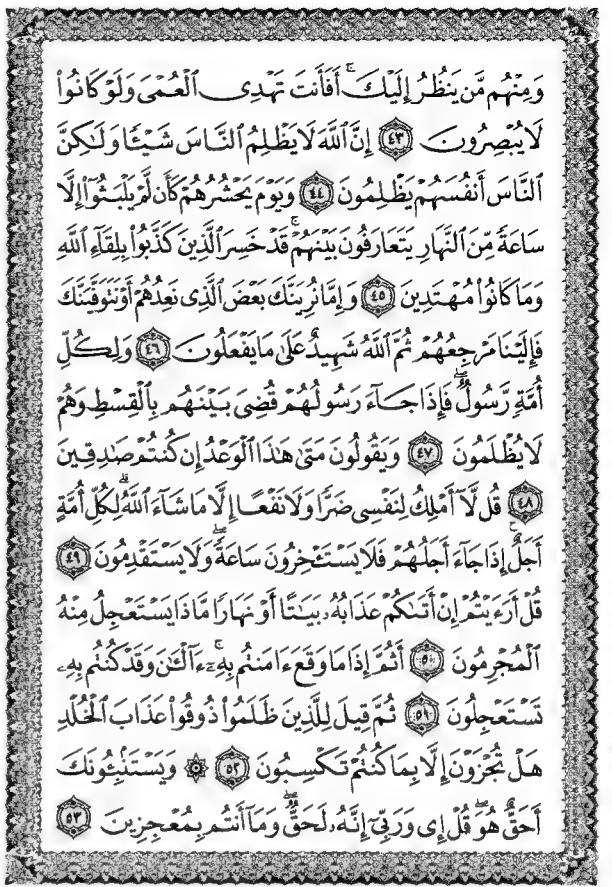 وَمِنْهُم مَّن يَنظُرُ إِلَيْكَ ۚ أَفَأَنتَ تَهْدِى ٱلْعُمْىَ وَلَوْ كَانُوا۟
لَا يُبْصِرُونَ ٤٣ إِنَّ ٱللَّهَ لَا يَظْلِمُ ٱلنَّاسَ شَيْـًٔا وَلَـٰكِنَّ
ٱلنَّاسَ أَنفُسَهُمْ يَظْلِمُونَ ٤٤ وَيَوْمَ يَحْشُرُهُمْ كَأَن لَّمْ يَلْبَثُوٓا۟ إِلَّا
سَاعَةً مِّنَ ٱلنَّهَارِ يَتَعَارَفُونَ بَيْنَهُمْ ۚ قَدْ خَسِرَ ٱلَّذِينَ كَذَّبُوا۟ بِلِقَآءِ ٱللَّهِ
وَمَا كَانُوا۟ مُهْتَدِينَ ٤٥ وَإِمَّا نُرِيَنَّكَ بَعْضَ ٱلَّذِى نَعِدُهُمْ أَوْ نَتَوَفَّيَنَّكَ
فَإِلَيْنَا مَرْجِعُهُمْ ثُمَّ ٱللَّهُ شَهِيدٌ عَلَىٰ مَا يَفْعَلُونَ ٤٦ وَلِكُلِّ
أُمَّةٍ رَّسُولٌ ۖ فَإِذَا جَآءَ رَسُولُهُمْ قُضِىَ بَيْنَهُم بِٱلْقِسْطِ وَهُمْ
لَا يُظْلَمُونَ ٤٧ وَيَقُولُونَ مَتَىٰ هَـٰذَا ٱلْوَعْدُ إِن كُنتُمْ صَـٰدِقِينَ
٤٨ قُل لَّآ أَمْلِكُ لِنَفْسِى ضَرًّا وَلَا نَفْعًا إِلَّا مَا شَآءَ ٱللَّهُ ۗ لِكُلِّ أُمَّةٍ
أَجَلٌ ۚ إِذَا جَآءَ أَجَلُهُمْ فَلَا يَسْتَـْٔخِرُونَ سَاعَةً ۖ وَلَا يَسْتَقْدِمُونَ ٤٩
قُلْ أَرَءَيْتُمْ إِنْ أَتَىٰكُمْ عَذَابُهُۥ بَيَـٰتًا أَوْ نَهَارًا مَّاذَا يَسْتَعْجِلُ مِنْهُ
ٱلْمُجْرِمُونَ ٥٠ أَثُمَّ إِذَا مَا وَقَعَ ءَامَنتُم بِهِۦٓ ۚ ءَآلْـَٔـٰنَ وَقَدْ كُنتُم بِهِۦ
تَسْتَعْجِلُونَ ٥١ ثُمَّ قِيلَ لِلَّذِينَ ظَلَمُوا۟ ذُوقُوا۟ عَذَابَ ٱلْخُلْدِ
هَلْ تُجْزَوْنَ إِلَّا بِمَا كُنتُمْ تَكْسِبُونَ ٥٢ ۞ وَيَسْتَنۢبِـُٔونَكَ
أَحَقٌّ هُوَ ۖ قُلْ إِى وَرَبِّىٓ إِنَّهُۥ لَحَقٌّ ۖ وَمَآ أَنتُم بِمُعْجِزِينَ ٥٣